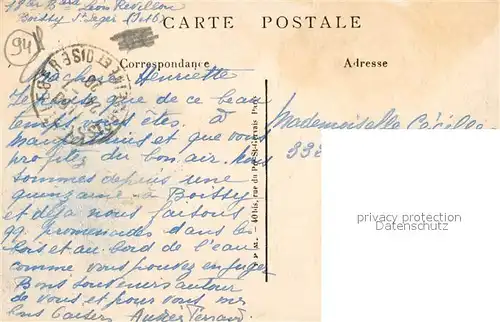 19 ter Bard Léon Révillon
Boissy St Léger (S et O)
CARTE POSTALE
94
Correspondance
Adresse
Ma chère Henriette
Je pense que de ce beau
temps vous êtes à
et que vous
profitez du bon air. Nous
sommes depuis une
quinzaine à Boissy
et déjà nous faisons
99 promenades dans les
bois et au bord de l'eau
comme vous pouvez en juger
Bons souvenirs autour
de vous et pour vous mes
bons baisers
Mademoiselle Cécile
332
40 bis, rue du Pré-St-Gervais
privacy protection
Datenschutz